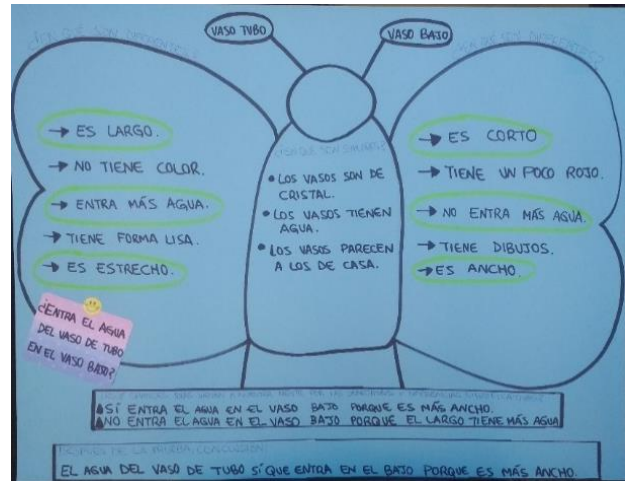 VASO TUBO
VASO BAJO
¿EN QUÉ SON DIFERENTES?
¿EN QUÉ SON DIFERENTES?
→ ES LARGO.
→ NO TIENE COLOR.
→ ENTRA MÁS AGUA.
→ TIENE FORMA LISA.
→ ES ESTRECHO.
¿EN QUÉ SON SIMILARES?
• LOS VASOS SON DE
CRISTAL.
• LOS VASOS TIENEN
AGUA.
• LOS VASOS PARECEN
A LOS DE CASA.
→ ES CORTO
→ TIENE UN POCO ROJO.
→ NO ENTRA MÁS AGUA.
→ TIENE DIBUJOS.
→ ES ANCHO.
¿ENTRA EL AGUA
DEL VASO DE TUBO
EN EL VASO BAJO?
SÍ ENTRA EL AGUA EN EL VASO BAJO PORQUE ES MÁS ANCHO.
NO ENTRA EL AGUA EN EL VASO BAJO PORQUE EL LARGO TIENE MÁS AGUA
DESPUÉS DE LA PRUEBA, CONCLUSIÓN:
EL AGUA DEL VASO DE TUBO SÍ QUE ENTRA EN EL BAJO PORQUE ES MÁS ANCHO.